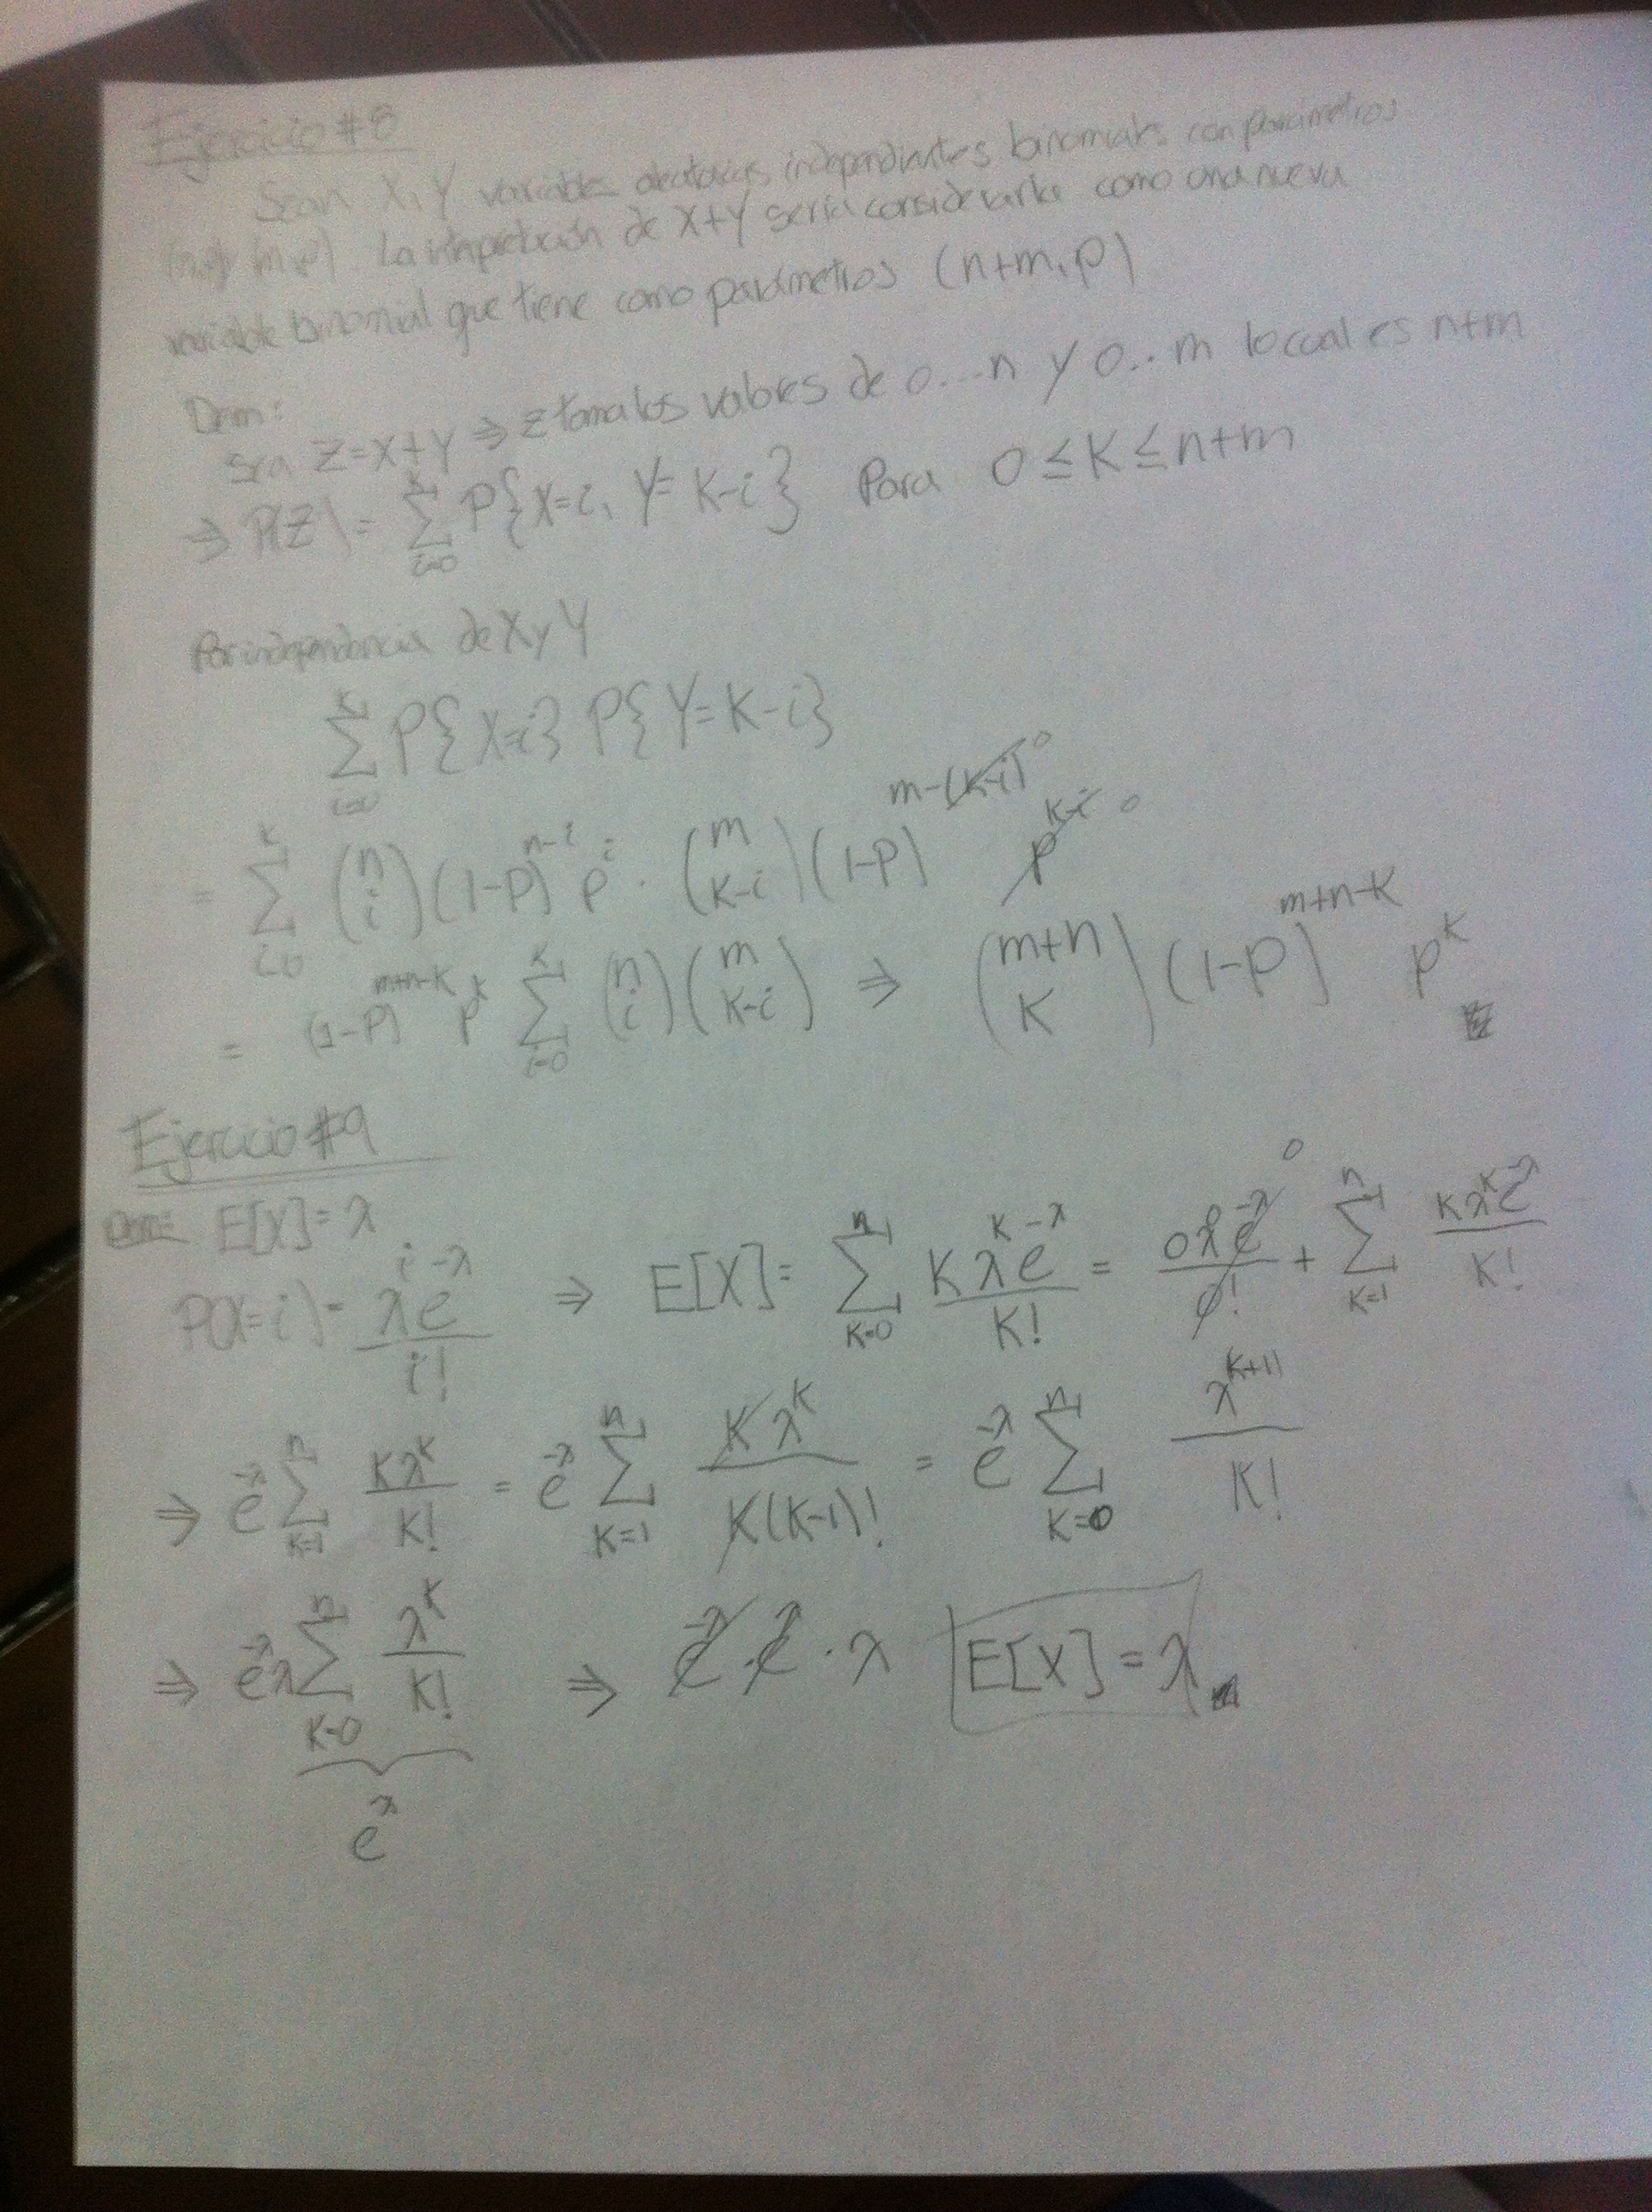 Ejercicio #8
Sean X, Y variables aleatorias independientes binomiales con parámetros
(n,p) (m,p). La interpretación de X+Y sería considerarla como una nueva
variable binomial que tiene como parámetros (n+m, p)
Dem:
Sea Z=X+Y ⇒ Z toma los valores de 0...n y 0..m lo cual es n+m
⇒ P(Z) = ∑_{i=0}^{k} P{X=i, Y=K-i} Para 0 ≤ K ≤ n+m
Por independencia de X y Y
∑_{i=0}^{k} P{X=i} P{Y=K-i}
= ∑_{i=0}^{k} (n i)(1-p)^{n-i} p^i · (m K-i)(1-p)^{m-(K-i)} 0 p^{K-i} 0
= (1-p)^{m+n-K} p^k ∑_{i=0}^{k} (n i)(m K-i) ⇒ (m+n K)(1-p)^{m+n-K} p^K
Ejercicio #9
Dem: E[X]=λ
P(X=i) = λ^i e^{-λ} / i! ⇒ E[X] = ∑_{K=0}^{n} Kλ^K e^{-λ} / K! = 0λ^0 e^{-λ} / 0! 0 + ∑_{K=1}^{n} Kλ^K e^{-λ} / K!
⇒ e^{-λ} ∑_{K=1}^{n} Kλ^K / K! = e^{-λ} ∑_{K=1}^{n} Kλ^K / K(K-1)! = e^{-λ} ∑_{K=0}^{n} λ^{K+1} / K!
⇒ e^{-λ} λ ∑_{K=0}^{n} λ^K / K! ⇒ e^{-λ} · e^{λ} · λ E[X] = λ
e^λ